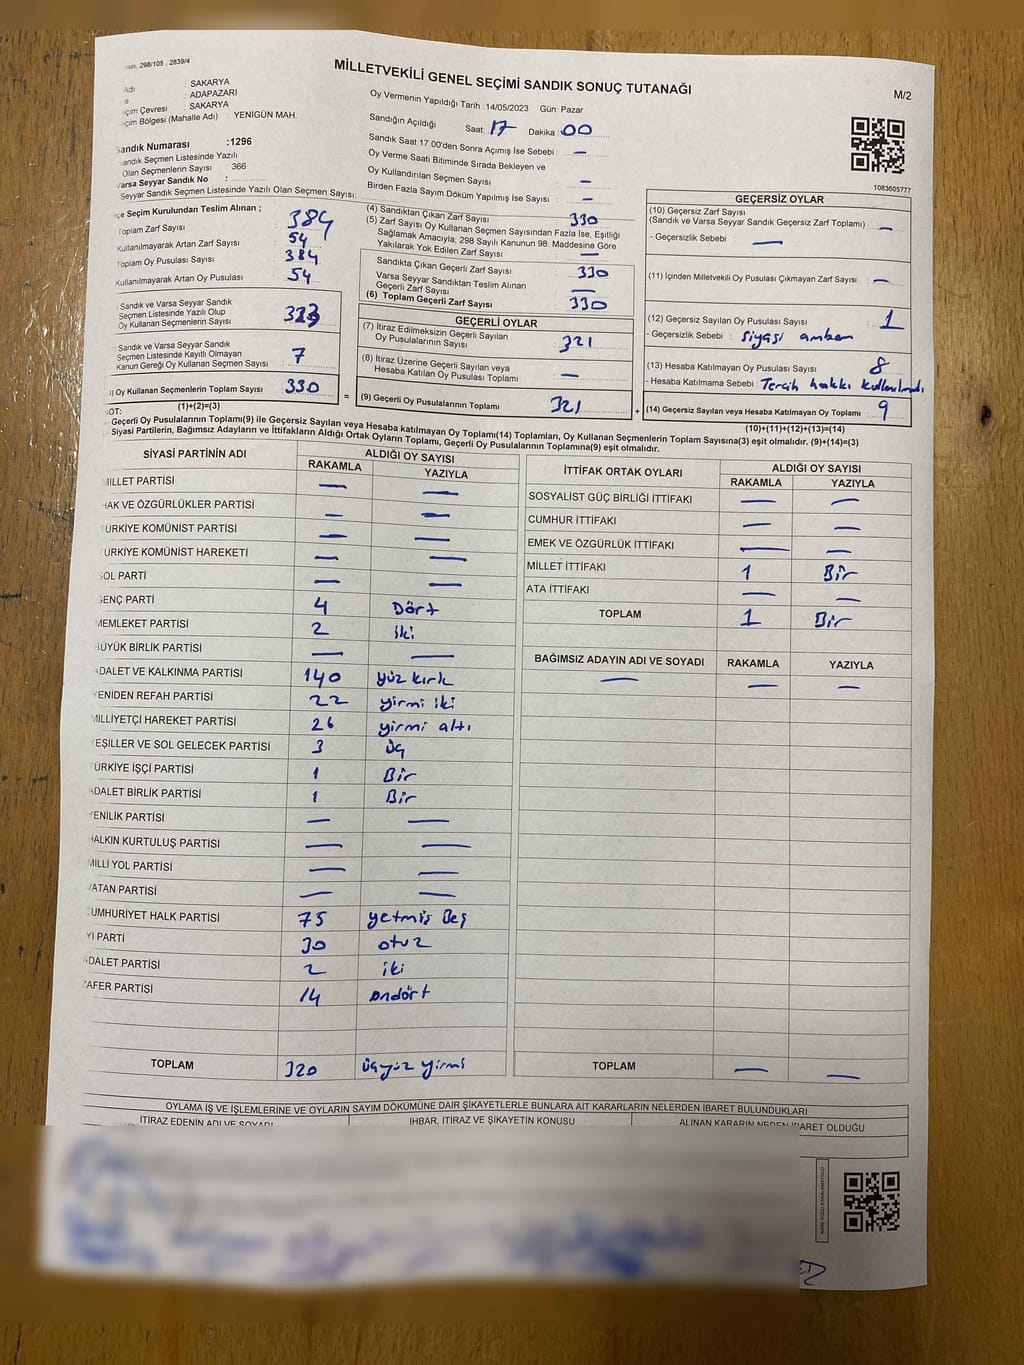 298/105 , 2839/4
MİLLETVEKİLİ GENEL SEÇİMİ SANDIK SONUÇ TUTANAĞI
M/2
: SAKARYA
: ADAPAZARI
Çevresi : SAKARYA
Bölgesi (Mahalle Adı) : YENİGÜN MAH.
Sandık Numarası :1296
Sandık Seçmen Listesinde Yazılı
Olan Seçmenlerin Sayısı : 366
Varsa Seyyar Sandık No :
Seyyar Sandık Seçmen Listesinde Yazılı Olan Seçmen Sayısı:
Oy Vermenin Yapıldığı Tarih :14/05/2023 Gün: Pazar
Sandığın Açıldığı Saat: 17 Dakika : 00
Sandık Saat 17:00'den Sonra Açımış İse Sebebi : —
Oy Verme Saati Bitiminde Sırada Bekleyen ve
Oy Kullandırılan Seçmen Sayısı : —
Birden Fazla Sayım Döküm Yapılmış İse Sayısı : —
1083605777
İlçe Seçim Kurulundan Teslim Alınan ;
Toplam Zarf Sayısı : 384
Kullanılmayarak Artan Zarf Sayısı : 54
Toplam Oy Pusulası Sayısı : 384
Kullanılmayarak Artan Oy Pusulası : 54
Sandık ve Varsa Seyyar Sandık
Seçmen Listesinde Yazılı Olup
Oy Kullanan Seçmenlerin Sayısı : 323
Sandık ve Varsa Seyyar Sandık
Seçmen Listesinde Kayıtlı Olmayan
Kanun Gereği Oy Kullanan Seçmen Sayısı : 7
Oy Kullanan Seçmenlerin Toplam Sayısı : 330
(1)+(2)=(3)
(4) Sandıktan Çıkan Zarf Sayısı : 330
(5) Zarf Sayısı Oy Kullanan Seçmen Sayısından Fazla İse, Eşitliği
Sağlamak Amacıyla; 298 Sayılı Kanunun 98. Maddesine Göre
Yakılarak Yok Edilen Zarf Sayısı : —
Sandıkta Çıkan Geçerli Zarf Sayısı : 330
Varsa Seyyar Sandıktan Teslim Alınan
Geçerli Zarf Sayısı : —
(6) Toplam Geçerli Zarf Sayısı : 330
GEÇERLİ OYLAR
(7) İtiraz Edilmeksizin Geçerli Sayılan
Oy Pusulalarının Sayısı : 321
(8) İtiraz Üzerine Geçerli Sayılan veya
Hesaba Katılan Oy Pusulası Toplamı : —
(9) Geçerli Oy Pusulalarının Toplamı : 321
GEÇERSİZ OYLAR
(10) Geçersiz Zarf Sayısı
(Sandık ve Varsa Seyyar Sandık Geçersiz Zarf Toplamı) : —
- Geçersizlik Sebebi : —
(11) İçinden Milletvekili Oy Pusulası Çıkmayan Zarf Sayısı : —
(12) Geçersiz Sayılan Oy Pusulası Sayısı : 1
- Geçersizlik Sebebi : Siyasi amblem
(13) Hesaba Katılmayan Oy Pusulası Sayısı : 8
- Hesaba Katılmama Sebebi : Tercih hakkı kullanılmadı
(14) Geçersiz Sayılan veya Hesaba Katılmayan Oy Toplamı : 9
(10)+(11)+(12)+(13)=(14)
NOT:
Geçerli Oy Pusulalarının Toplamı(9) ile Geçersiz Sayılan veya Hesaba katılmayan Oy Toplamı(14) Toplamları, Oy Kullanan Seçmenlerin Toplam Sayısına(3) eşit olmalıdır. (9)+(14)=(3)
Siyasi Partilerin, Bağımsız Adayların ve İttifakların Aldığı Ortak Oyların Toplamı, Geçerli Oy Pusulalarının Toplamına(9) eşit olmalıdır.
SİYASİ PARTİNİN ADI ALDIĞI OY SAYISI
RAKAMLA YAZIYLA
MİLLET PARTİSİ — —
HAK VE ÖZGÜRLÜKLER PARTİSİ — —
TÜRKİYE KOMÜNİST PARTİSİ — —
TÜRKİYE KOMÜNİST HAREKETİ — —
SOL PARTİ — —
GENÇ PARTİ 4 Dört
MEMLEKET PARTİSİ 2 iki
BÜYÜK BİRLİK PARTİSİ — —
ADALET VE KALKINMA PARTİSİ 140 yüz kırk
YENİDEN REFAH PARTİSİ 22 yirmi iki
MİLLİYETÇİ HAREKET PARTİSİ 26 yirmi altı
YEŞİLLER VE SOL GELECEK PARTİSİ 3 üç
TÜRKİYE İŞÇİ PARTİSİ 1 Bir
ADALET BİRLİK PARTİSİ 1 Bir
YENİLİK PARTİSİ — —
HALKIN KURTULUŞ PARTİSİ — —
MİLLİ YOL PARTİSİ — —
VATAN PARTİSİ — —
CUMHURİYET HALK PARTİSİ 75 yetmiş Beş
İYİ PARTİ 30 otuz
ADALET PARTİSİ 2 iki
ZAFER PARTİSİ 14 ondört
TOPLAM 320 üçyüz yirmi
İTTİFAK ORTAK OYLARI ALDIĞI OY SAYISI
RAKAMLA YAZIYLA
SOSYALİST GÜÇ BİRLİĞİ İTTİFAKI — —
CUMHUR İTTİFAKI — —
EMEK VE ÖZGÜRLÜK İTTİFAKI — —
MİLLET İTTİFAKI 1 Bir
ATA İTTİFAKI — —
TOPLAM 1 Bir
BAĞIMSIZ ADAYIN ADI VE SOYADI RAKAMLA YAZIYLA
— — —
TOPLAM — —
OYLAMA İŞ VE İŞLEMLERİNE VE OYLARIN SAYIM DÖKÜMÜNE DAİR ŞİKAYETLERLE BUNLARA AİT KARARLARIN NELERDEN İBARET BULUNDUKLARI
İTİRAZ EDENİN ADI VE SOYADI İHBAR, İTİRAZ VE ŞİKAYETİN KONUSU ALINAN KARARIN NEDEN İBARET OLDUĞU